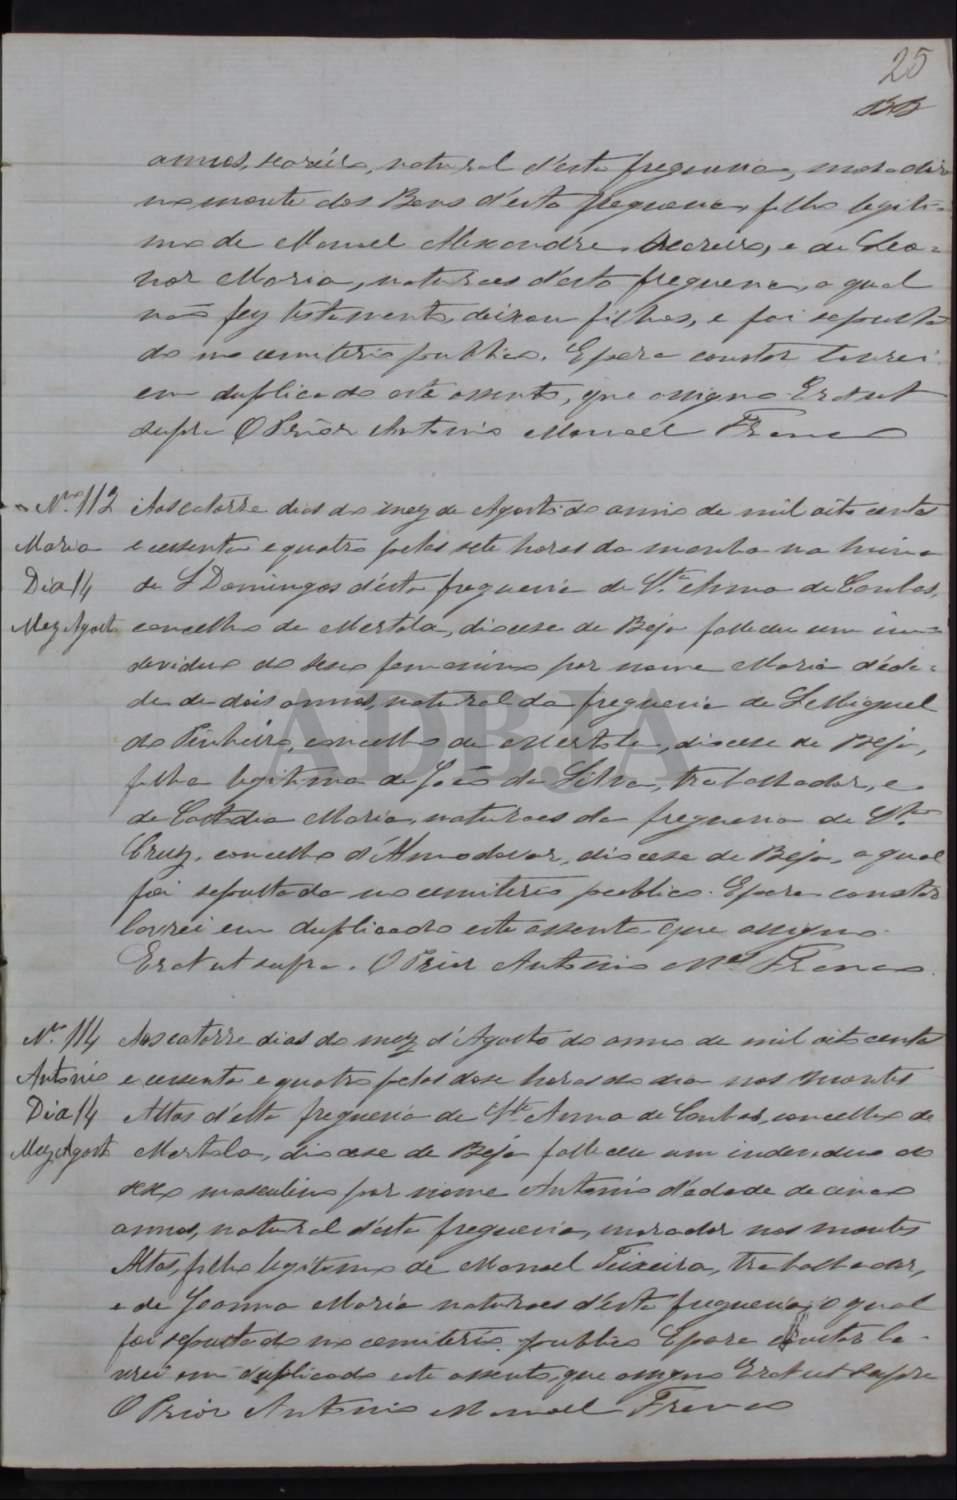 25
annos, seareiro, natural d'esta freguezia, morador
no monte dos Bens d'esta freguezia, filho legiti-
mo de Manoel Alexandre, seareiro, e de Leo-
nor Maria, naturaes d'esta freguezia, o qual
não fez testamento, deixou filhos, e foi sepulta-
do no cemiterio publico. E para constar lavrei
em duplicado este assento, que assigno Era ut
supra O Prior Antonio Manoel Franco
Nº 112
Maria
Dia 14
Mez Agosto
Aos catorze dias do mez de Agosto do anno de mil oito centos
e cessenta e quatro pelas sete horas da manha na mina
de S Domingos d'esta freguezia de Stª Anna de Cambas,
concelho de Mertola, diocese de Beja falleceu um in-
devidue do sexo femenino por nome Maria d'eda-
de de dois annos, natural da freguezia de S Miguel
do Pinheiro, concelho de Mertola, diocese de Beja,
filha legitima de João da Silva, trabalhador, e
de Custodia Maria, naturaes da freguezia de Stª
Cruz, concelho d'Almodovar, diocese de Beja, a qual
foi sepultada no cemiterio publico. E para constar
lavrei em duplicado este assento que assigno.
Era ut supra. O Prior Antonio Mel Franco
Nº 114
Antonio
Dia 14
Mez Agosto
Aos catorze dias do mez d'Agosto do anno de mil oito centos
e cessenta e quatro pelas dose horas do dia nos Montes
Altos d'esta freguezia de Stª Anna de Cambas, concelho de
Mertola, diocese de Beja falleceu um indeviduo do
sexo masculino por nome Antonio d'edade de cinco
annos, natural d'esta freguezia, morador nos montes
Altos, filho legitimo de Manoel Teixeira, trabalhador,
e de Joanna Maria naturaes d'esta freguezia, o qual
foi sepultado no cemiterio publico E para constar la-
vrei em duplicado este assento, que assigno Era ut supra
O Prior Antonio Manoel Franco
ADBJA